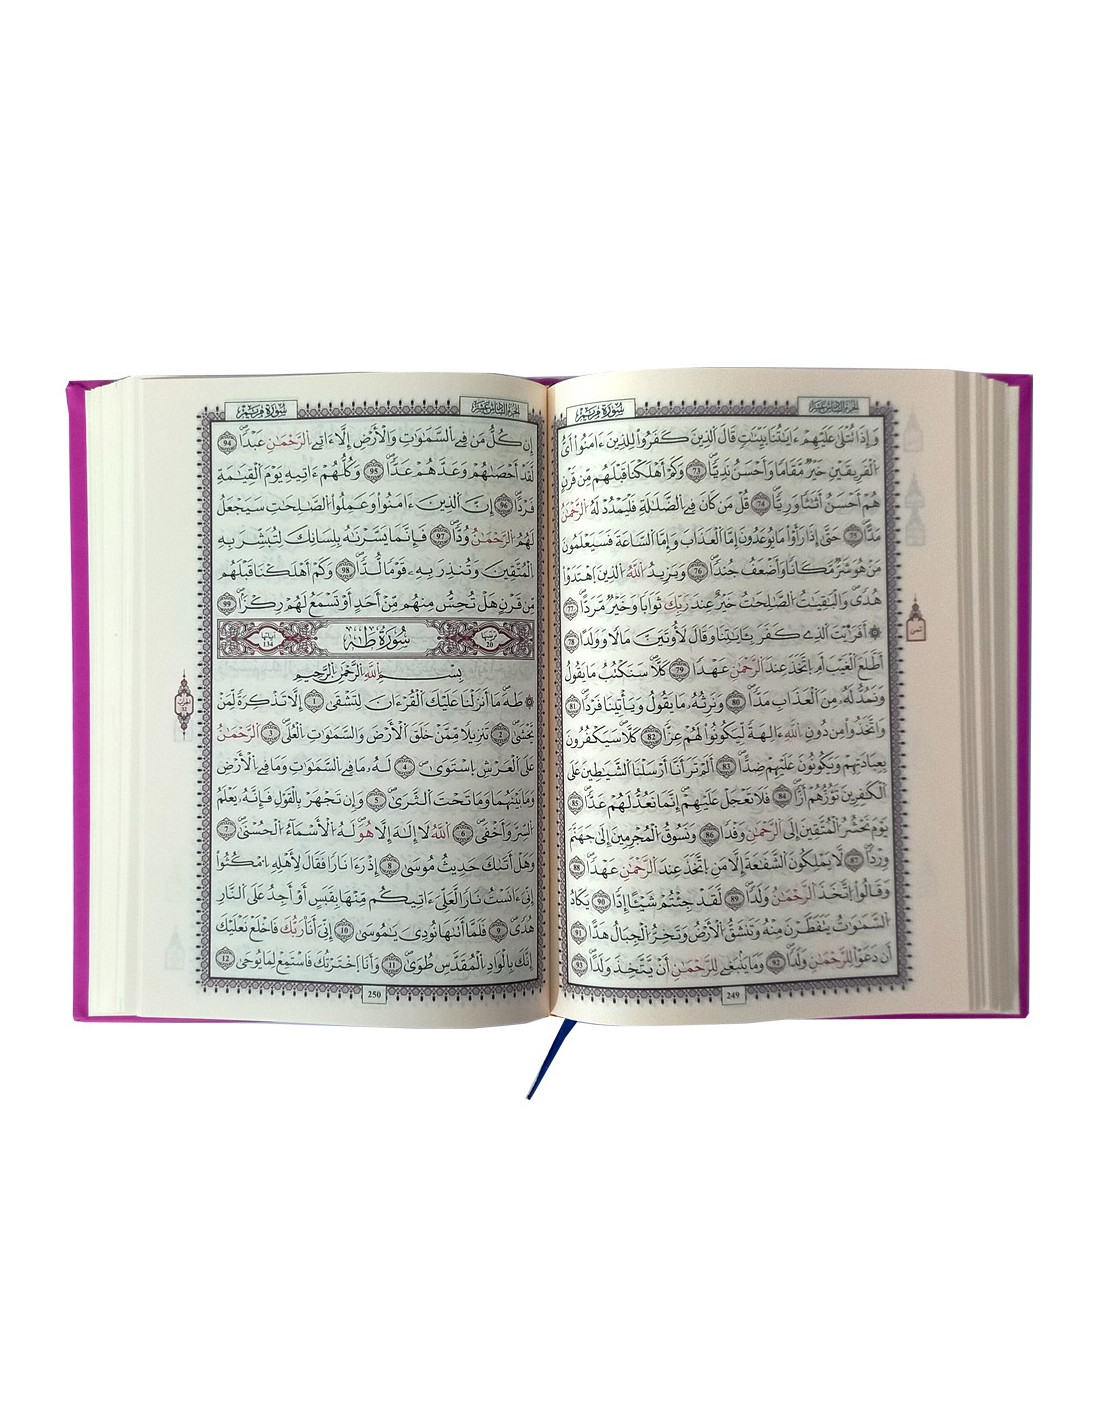 سُورَةُ مَرْيَمَ الجزء السادس عشر
وَإِذَا تُتْلَىٰ عَلَيْهِمْ ءَايَٰتُنَا بَيِّنَٰتٍ قَالَ ٱلَّذِينَ كَفَرُوا لِلَّذِينَ ءَامَنُوا أَيُّ
ٱلْفَرِيقَيْنِ خَيْرٌ مَّقَامًا وَأَحْسَنُ نَدِيًّا 73 وَكَمْ أَهْلَكْنَا قَبْلَهُم مِّن قَرْنٍ
هُمْ أَحْسَنُ أَثَٰثًا وَرِيًّا 74 قُلْ مَن كَانَ فِي ٱلضَّلَٰلَةِ فَلْيَمْدُدْ لَهُ ٱلرَّحْمَٰنُ
مَدًّا 75 حَتَّىٰ إِذَا رَأَوْا مَا يُوعَدُونَ إِمَّا ٱلْعَذَابَ وَإِمَّا ٱلسَّاعَةَ فَسَيَعْلَمُونَ
مَنْ هُوَ شَرٌّ مَّكَانًا وَأَضْعَفُ جُندًا 76 وَيَزِيدُ ٱللَّهُ ٱلَّذِينَ ٱهْتَدَوْا
هُدًى وَٱلْبَٰقِيَٰتُ ٱلصَّٰلِحَٰتُ خَيْرٌ عِندَ رَبِّكَ ثَوَابًا وَخَيْرٌ مَّرَدًّا 77
۞ أَفَرَٰيْتَ ٱلَّذِي كَفَرَ بِـَٔايَٰتِنَا وَقَالَ لَأُوتَيَنَّ مَالًا وَوَلَدًا 78
ثمن
أَطَّلَعَ ٱلْغَيْبَ أَمِ ٱتَّخَذَ عِندَ ٱلرَّحْمَٰنِ عَهْدًا 79 كَلَّا سَنَكْتُبُ مَا يَقُولُ
وَنَمُدُّ لَهُۥ مِنَ ٱلْعَذَابِ مَدًّا 80 وَنَرِثُهُۥ مَا يَقُولُ وَيَأْتِينَا فَرْدًا 81
وَٱتَّخَذُوا مِن دُونِ ٱللَّهِ ءَالِهَةً لِّيَكُونُوا لَهُمْ عِزًّا 82 كَلَّا سَيَكْفُرُونَ
بِعِبَادَتِهِمْ وَيَكُونُونَ عَلَيْهِمْ ضِدًّا 83 أَلَمْ تَرَ أَنَّا أَرْسَلْنَا ٱلشَّيَٰطِينَ عَلَى
ٱلْكَٰفِرِينَ تَؤُزُّهُمْ أَزًّا 84 فَلَا تَعْجَلْ عَلَيْهِمْ إِنَّمَا نَعُدُّ لَهُمْ عَدًّا 85
يَوْمَ نَحْشُرُ ٱلْمُتَّقِينَ إِلَى ٱلرَّحْمَٰنِ وَفْدًا 86 وَنَسُوقُ ٱلْمُجْرِمِينَ إِلَىٰ جَهَنَّمَ
وِرْدًا 87 لَّا يَمْلِكُونَ ٱلشَّفَٰعَةَ إِلَّا مَنِ ٱتَّخَذَ عِندَ ٱلرَّحْمَٰنِ عَهْدًا 88
وَقَالُوا ٱتَّخَذَ ٱلرَّحْمَٰنُ وَلَدًا 89 لَّقَدْ جِئْتُمْ شَيْـًٔا إِدًّا 90 يَكَادُ
ٱلسَّمَٰوَٰتُ يَتَفَطَّرْنَ مِنْهُ وَتَنشَقُّ ٱلْأَرْضُ وَتَخِرُّ ٱلْجِبَالُ هَدًّا 91
أَن دَعَوْا لِلرَّحْمَٰنِ وَلَدًا 92 وَمَا يَنۢبَغِي لِلرَّحْمَٰنِ أَنْ يَّتَّخِذَ وَلَدًا 93
249
سُورَةُ مَرْيَمَ الجزء السادس عشر
إِن كُلُّ مَن فِي ٱلسَّمَٰوَٰتِ وَٱلْأَرْضِ إِلَّا ءَاتِي ٱلرَّحْمَٰنِ عَبْدًا 94
لَّقَدْ أَحْصَىٰهُمْ وَعَدَّهُمْ عَدًّا 95 وَكُلُّهُمْ ءَاتِيهِ يَوْمَ ٱلْقِيَٰمَةِ
فَرْدًا 96 إِنَّ ٱلَّذِينَ ءَامَنُوا وَعَمِلُوا ٱلصَّٰلِحَٰتِ سَيَجْعَلُ
لَهُمُ ٱلرَّحْمَٰنُ وُدًّا 97 فَإِنَّمَا يَسَّرْنَٰهُ بِلِسَانِكَ لِتُبَشِّرَ بِهِ
ٱلْمُتَّقِينَ وَتُنذِرَ بِهِۦ قَوْمًا لُّدًّا 98 وَكَمْ أَهْلَكْنَا قَبْلَهُم
مِّن قَرْنٍ هَلْ تُحِسُّ مِنْهُم مِّنْ أَحَدٍ أَوْ تَسْمَعُ لَهُمْ رِكْزًا 99
ترتيبها 20 سُورَةُ طَهَ آياتها 134
بِسْمِ ٱللَّهِ ٱلرَّحْمَٰنِ ٱلرَّحِيمِ
۞ طَهَ مَا أَنزَلْنَا عَلَيْكَ ٱلْقُرْءَانَ لِتَشْقَىٰ 1 إِلَّا تَذْكِرَةً لِّمَنْ
الحزب 32
يَخْشَىٰ 2 تَنزِيلًا مِّمَّنْ خَلَقَ ٱلْأَرْضَ وَٱلسَّمَٰوَٰتِ ٱلْعُلَى 3 ٱلرَّحْمَٰنُ
عَلَى ٱلْعَرْشِ ٱسْتَوَىٰ 4 لَهُۥ مَا فِي ٱلسَّمَٰوَٰتِ وَمَا فِي ٱلْأَرْضِ
وَمَا بَيْنَهُمَا وَمَا تَحْتَ ٱلثَّرَىٰ 5 وَإِن تَجْهَرْ بِٱلْقَوْلِ فَإِنَّهُۥ يَعْلَمُ
ٱلسِّرَّ وَأَخْفَى 6 ٱللَّهُ لَا إِلَٰهَ إِلَّا هُوَ لَهُ ٱلْأَسْمَاءُ ٱلْحُسْنَىٰ 7
وَهَلْ أَتَىٰكَ حَدِيثُ مُوسَىٰ 8 إِذْ رَءَا نَارًا فَقَالَ لِأَهْلِهِ ٱمْكُثُوا
إِنِّيَ ءَانَسْتُ نَارًا لَّعَلِّيَ ءَاتِيكُم مِّنْهَا بِقَبَسٍ أَوْ أَجِدُ عَلَى ٱلنَّارِ
هُدًى 9 فَلَمَّا أَتَىٰهَا نُودِيَ يَٰمُوسَىٰ 10 إِنِّيَ أَنَا رَبُّكَ فَٱخْلَعْ نَعْلَيْكَ
إِنَّكَ بِٱلْوَادِ ٱلْمُقَدَّسِ طُوَىٰ 11 وَأَنَا ٱخْتَرْتُكَ فَٱسْتَمِعْ لِمَا يُوحَىٰ 12
250